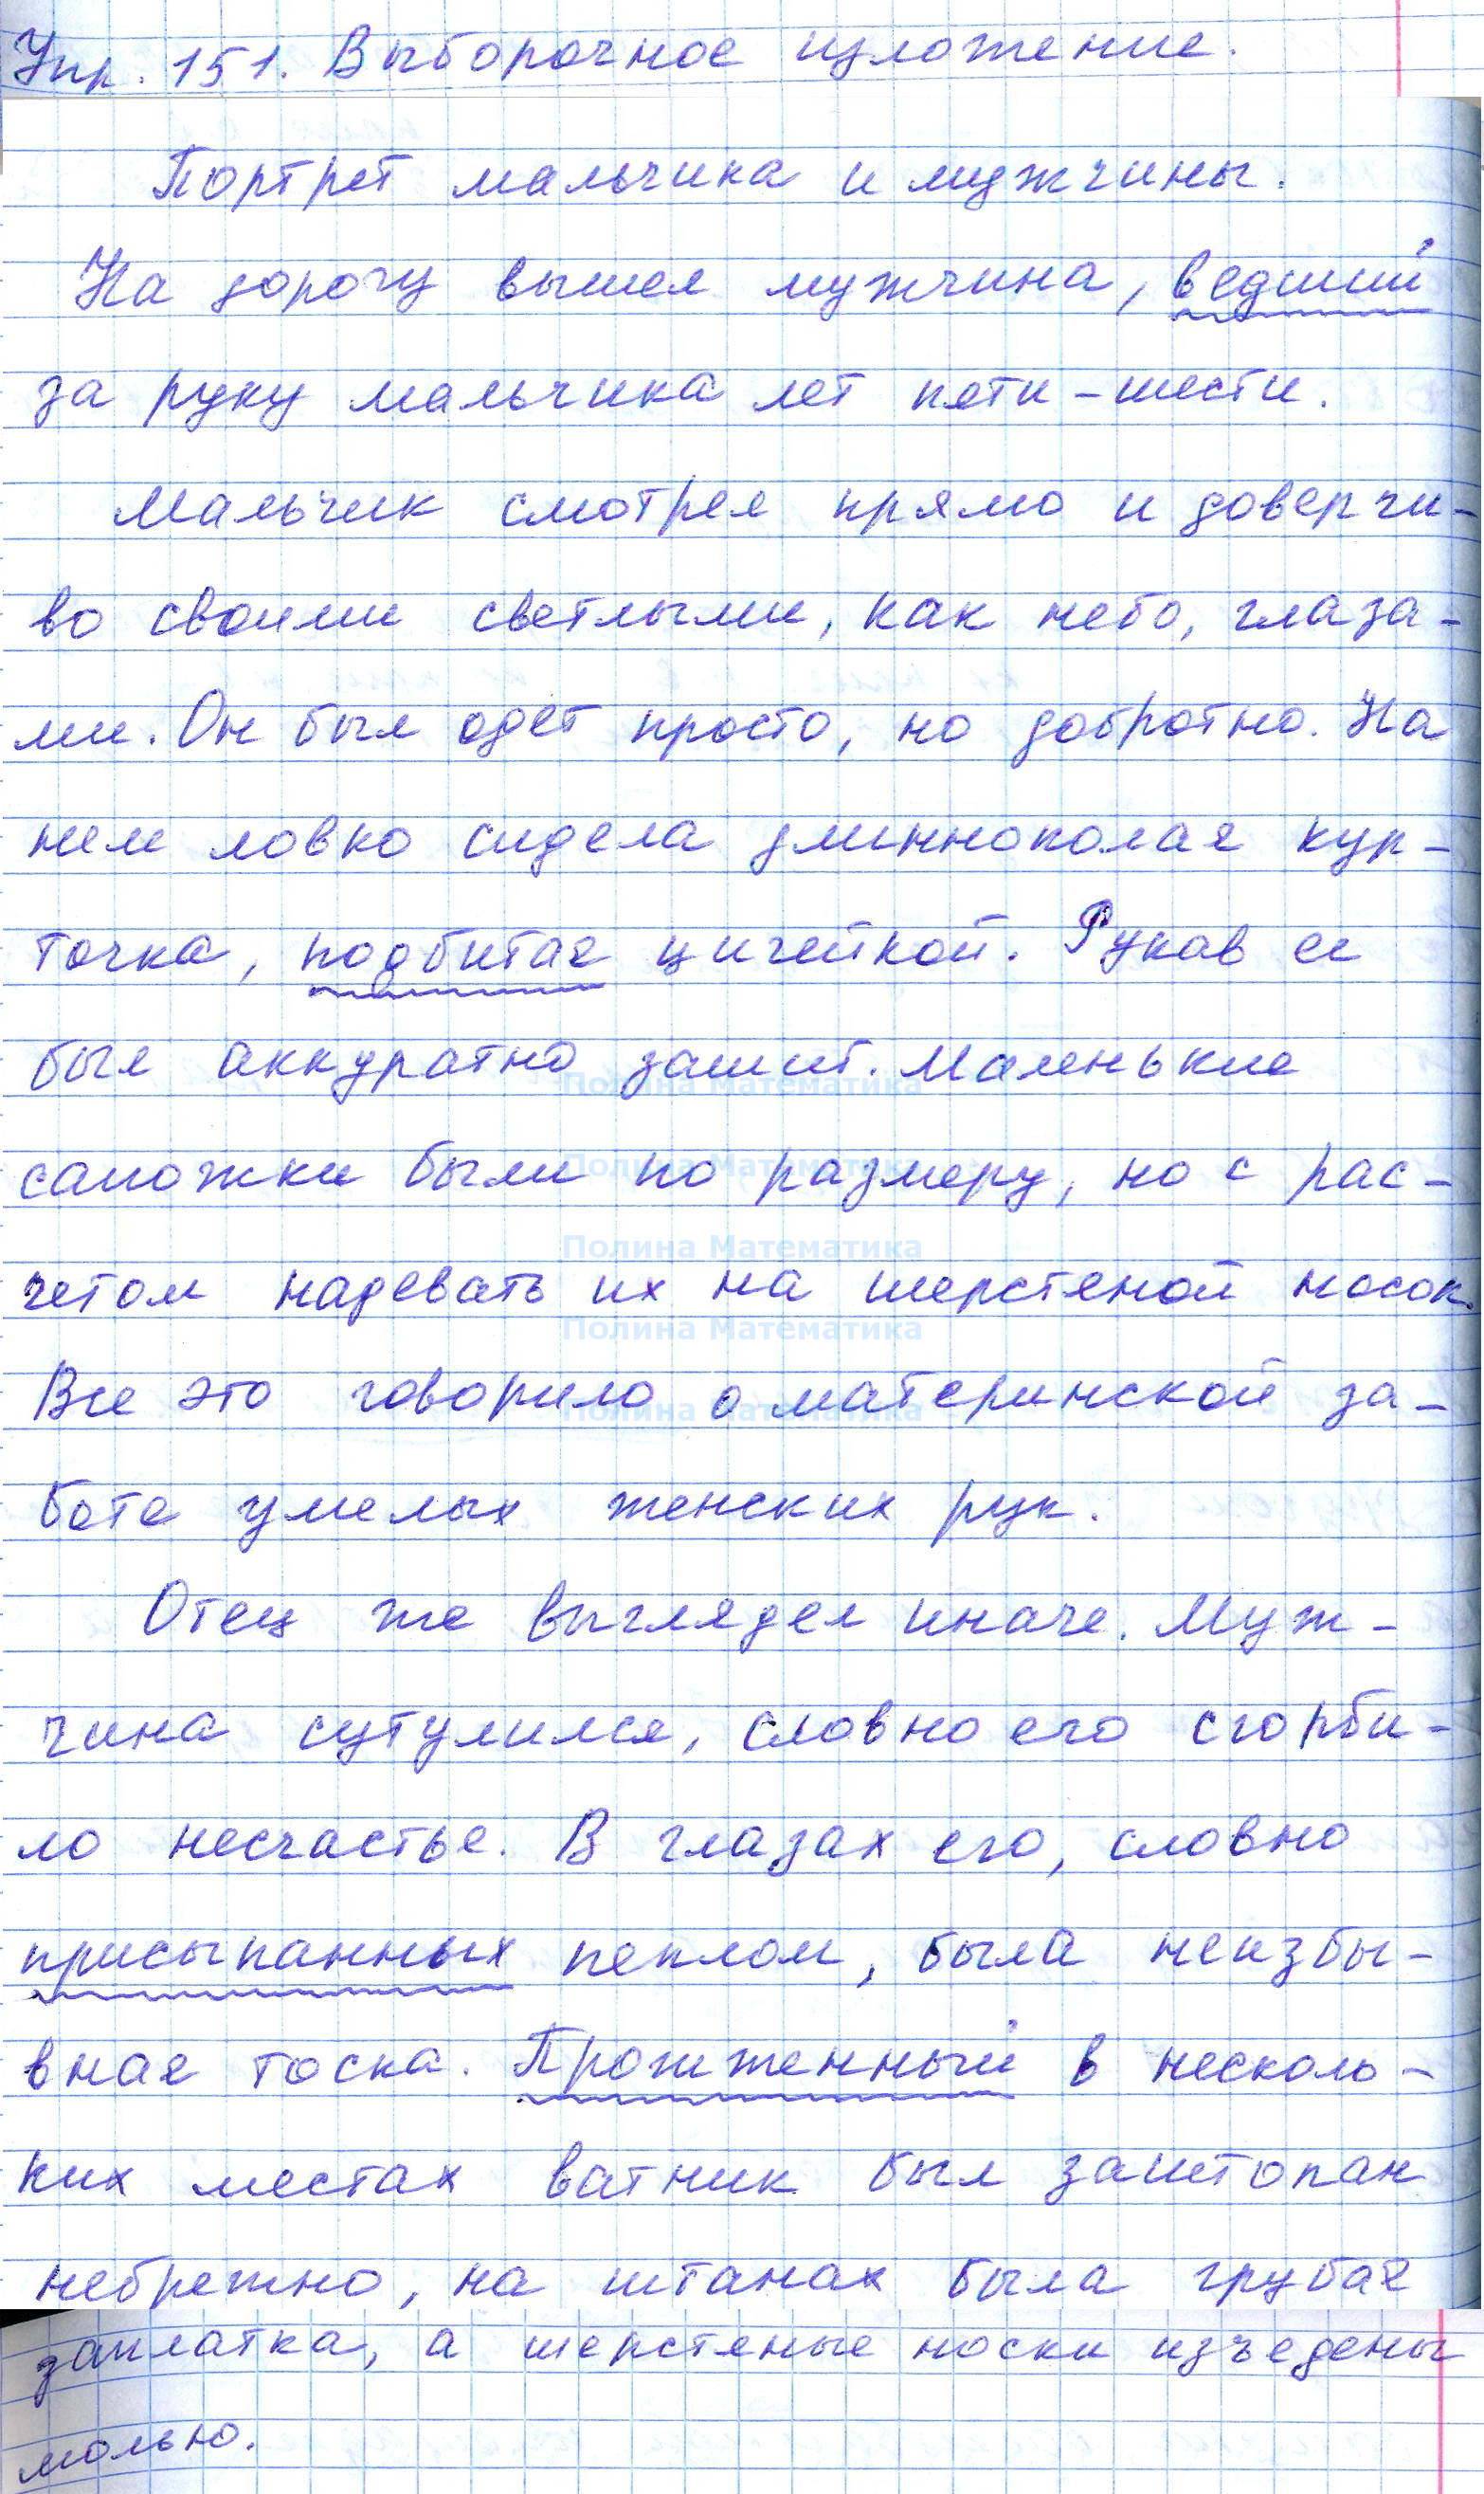 Упр. 151. Выборочное изложение.
Портрет мальчика и мужчины.
На дорогу вышел мужчина, ведший
за руку мальчика лет пяти-шести.
Мальчик смотрел прямо и доверчи-
во своими светлыми, как небо, глаза-
ми. Он был одет просто, но добротно. На
нем ловко сидела длиннополая кур-
точка, подбитая цигейкой. Рукав ее
был аккуратно зашит. Маленькие
Полина Математика
сапожки были по размеру, но с рас-
Полина Математика
Полина Математика
четом надевать их на шерстяной носок.
Полина Математика
Все это говорило о материнской за-
Полина Математика
боте умелых женских рук.
Отец же выглядел иначе. Муж-
чина сутулился, словно его сгорби-
ло несчастье. В глазах его, словно
присыпанных пеплом, была неизбы-
вная тоска. Прожженный в несколь-
ких местах ватник был заштопан
небрежно, на штанах была грубая
заплатка, а шерстяные носки изъедены
молью.